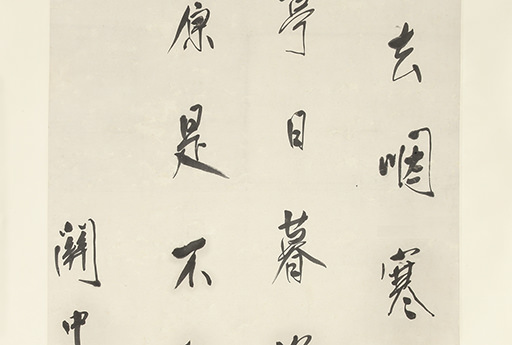 去咽寒
亭日暮
原是不
關中